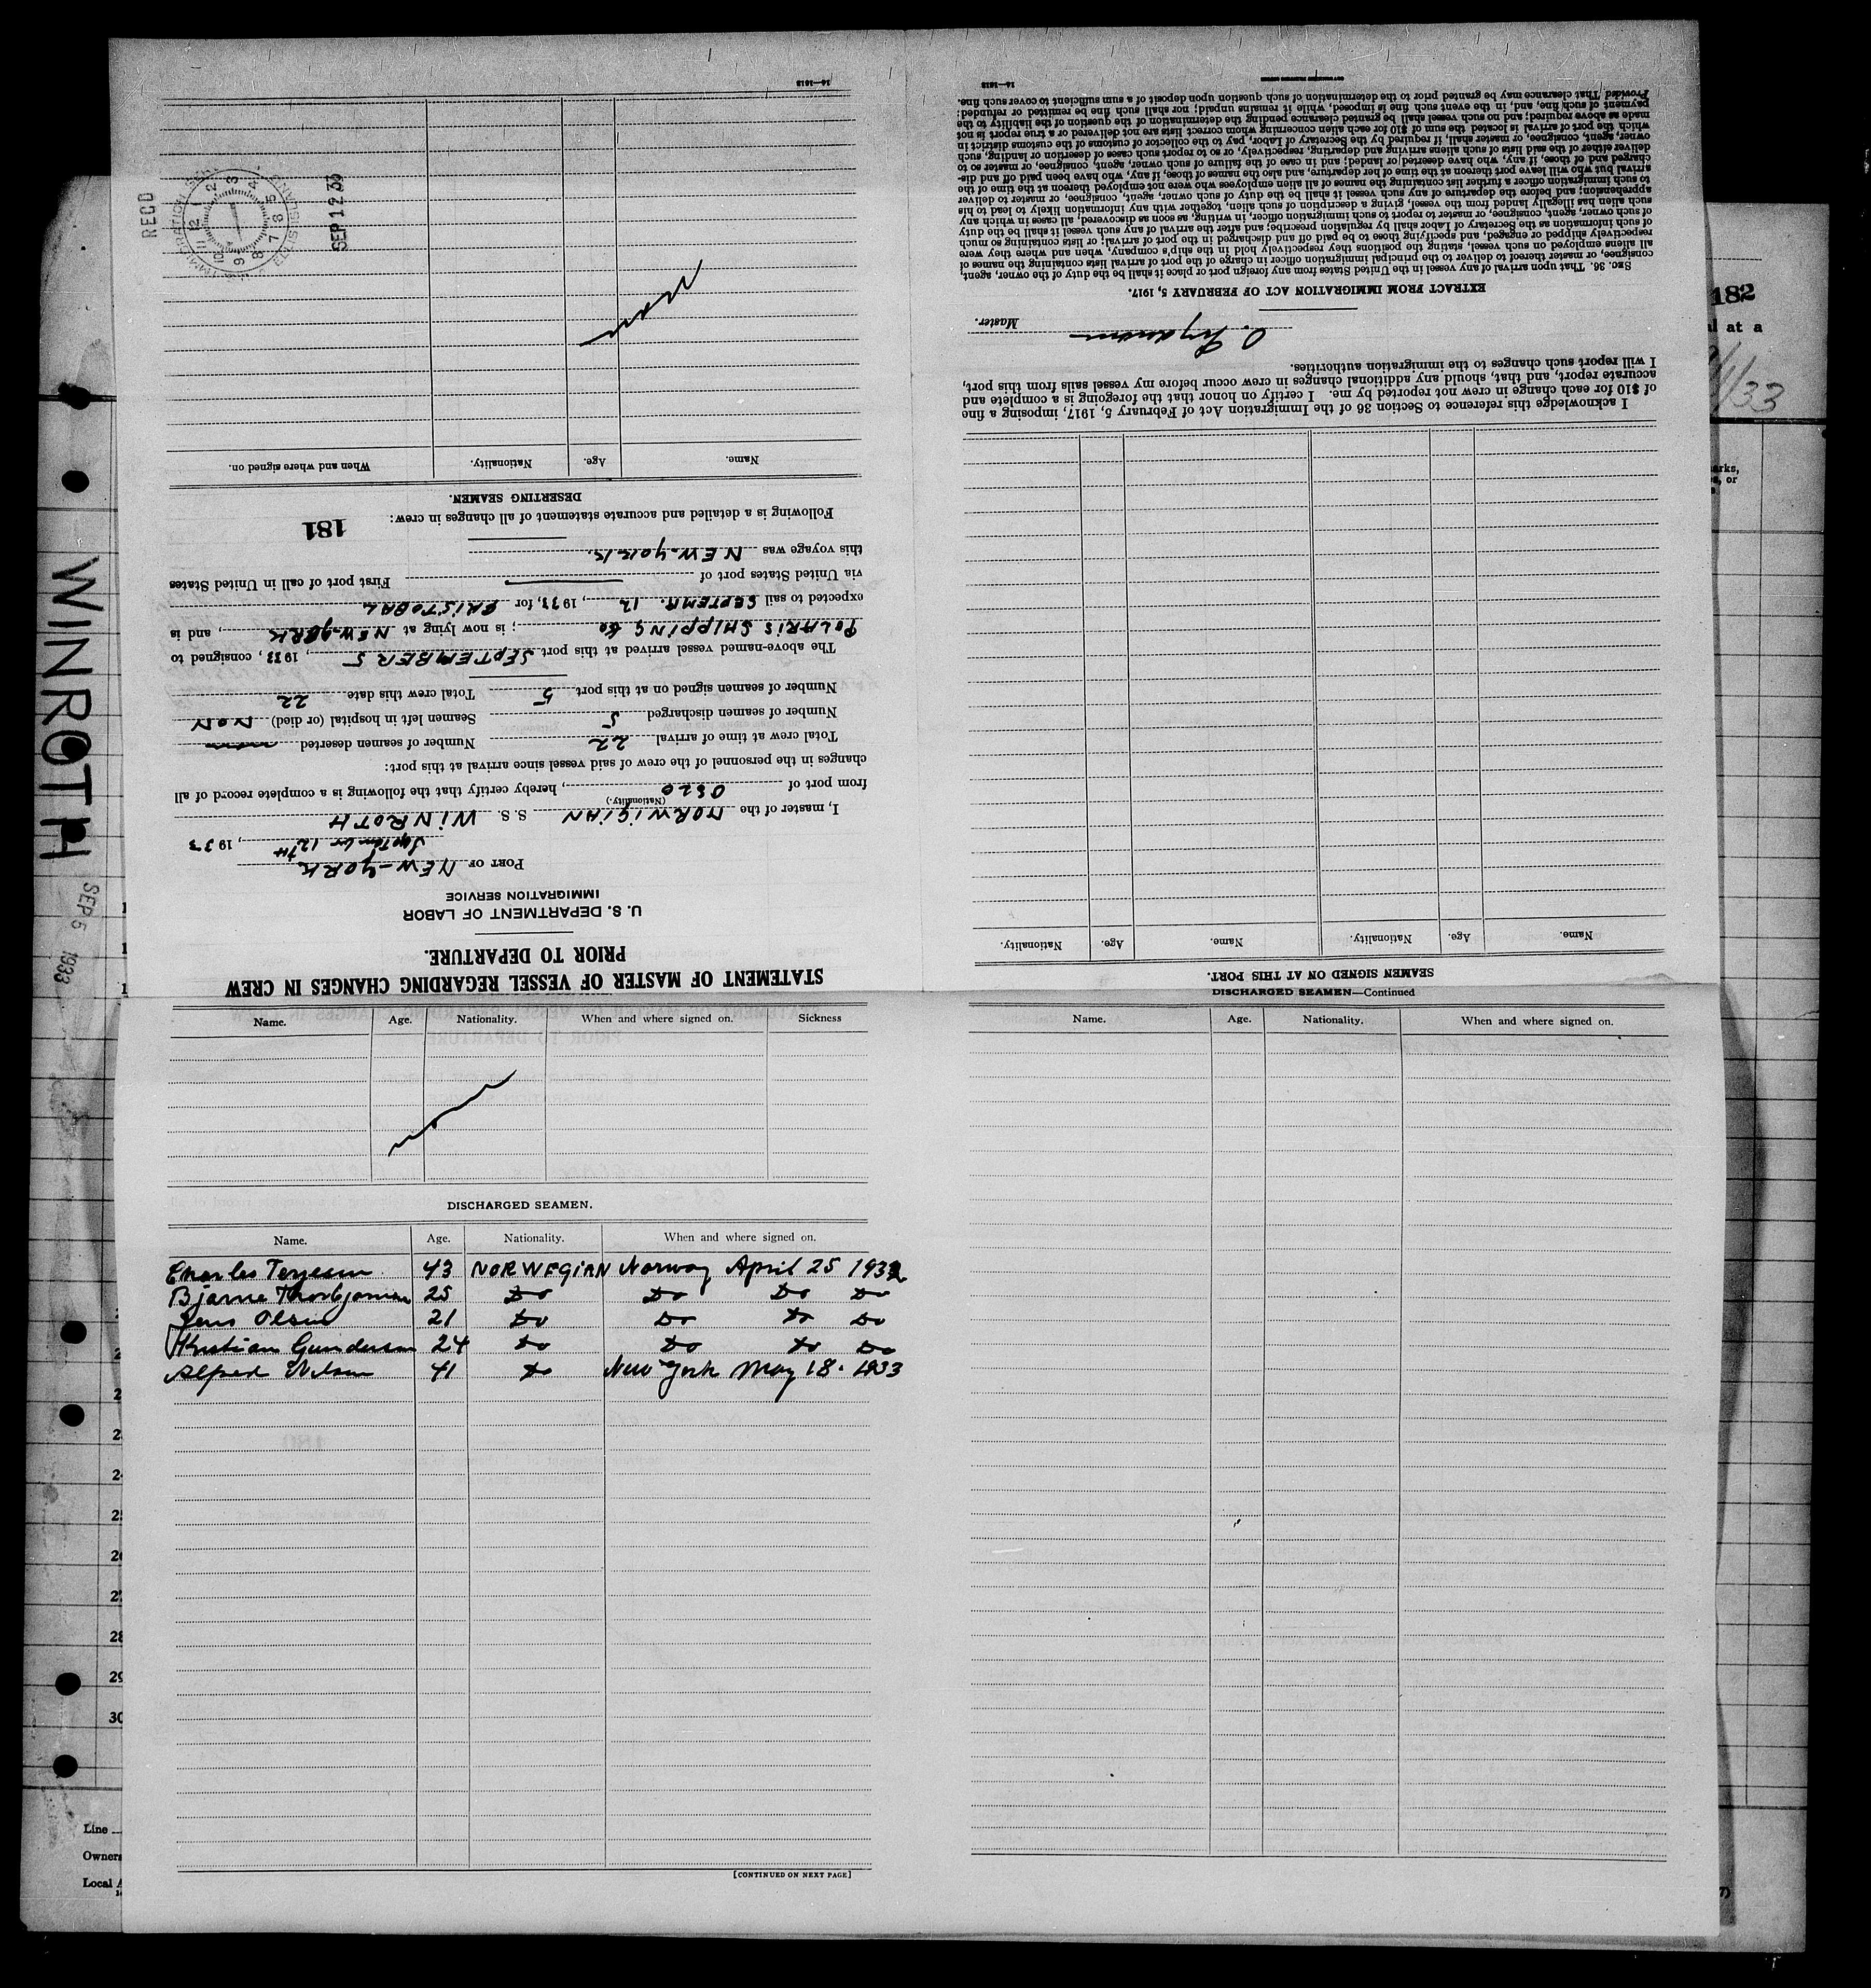 WINROTH
SEP 5 1933
182
al at a
/33
arks,
es, or
STATEMENT OF MASTER OF VESSEL REGARDING CHANGES IN CREW
PRIOR TO DEPARTURE.
U. S. DEPARTMENT OF LABOR
IMMIGRATION SERVICE
PORT OF NEW-YORK
September 12TH, 1933
I, master of the NORWIGIAN S. S. WINROTH
(Nationality.)
from port of OSLO, hereby certify that the following is a complete record of all
changes in the personnel of the crew of said vessel since arrival at this port:
Total crew at time of arrival 22 Number of seamen deserted
Number of seamen discharged 5 Seamen left in hospital (or died) NON
Number of seamen signed on at this port 5 Total crew this date 22
The above-named vessel arrived at this port SEPTEMBER 5, 1933, consigned to
POLARIS SHIPPING Co; is now lying at NEW-YORK, and is
expected to sail SEPTEMR. 12, 1933, for CRISTOBAL
via United States port of First port of call in United States
this voyage was NEW-YORK.
Following is a detailed and accurate statement of all changes in crew:
181
DESERTING SEAMEN.
Name. Age. Nationality. When and where signed on.
RECD
SEP 12 33
16—1613
SEAMEN SIGNED ON AT THIS PORT.
Name. Age. Nationality. Name. Age. Nationality.
I acknowledge this reference to Section 36 of the Immigration Act of February 5, 1917, imposing a fine
of $10 for each change in crew not reported by me. I certify on honor that the foregoing is a complete and
accurate report, and that, should any additional changes in crew occur before my vessel sails from this port,
I will report such changes to the immigration authorities.
Master.
EXTRACT FROM IMMIGRATION ACT OF FEBRUARY 5, 1917.
SEC. 36. That upon arrival of any vessel in the United States from any foreign port or place it shall be the duty of the owner, agent,
consignee, or master thereof to deliver to the principal immigration officer in charge of the port of arrival lists containing the names of
all aliens employed on such vessel, stating the positions they respectively hold in the ship's company, when and where they were
respectively shipped or engaged, and specifying those to be paid off and discharged in the port of arrival; or lists containing so much
of such information as the Secretary of Labor shall by regulation prescribe; and after the arrival of any such vessel it shall be the duty
of such owner, agent, consignee, or master to report to such immigration officer, in writing, as soon as discovered, all cases in which any
such alien has illegally landed from the vessel, giving a description of such alien, together with any information likely to lead to his
apprehension; and before the departure of any such vessel it shall be the duty of such owner, agent, consignee, or master to deliver
to such immigration officer a further list containing the names of all alien employees who were not employed thereon at the time of the
arrival but who will leave port thereon at the time of her departure, and also the names of those, if any, who have been paid off and dis-
charged and of those, if any, who have deserted or landed; and in case of the failure of such owner, agent, consignee, or master so to
deliver either of the said lists of such aliens arriving and departing, respectively, or so to report such cases of desertion or landing, such
owner, agent, consignee, or master shall, if required by the Secretary of Labor, pay to the collector of customs of the customs district in
which the port of arrival is located the sum of $10 for each alien concerning whom correct lists are not delivered or a true report is not
made as above required; and no such vessel shall be granted clearance pending the determination of the question of the liability to the
payment of such fine, and, in the event such fine is imposed, while it remains unpaid; nor shall such fine be remitted or refunded:
Provided, That clearance may be granted prior to the determination of such question upon deposit of a sum sufficient to cover such fine.
16—1613
Name. Age. Nationality. When and where signed on. Sickness
DISCHARGED SEAMEN.
Name. Age. Nationality. When and where signed on.
Charles Terjesen 43 NORWEGIAN Norway April 25 1932
Bjarne Thorbjornsen 25 Do Do Do Do
Jens Olsen 21 Do Do Do Do
Kristian Gundersen 24 Do Do Do Do
Alfred Nilsen 41 Do New York May 18. 1933
[CONTINUED ON NEXT PAGE]
DISCHARGED SEAMEN—Continued
Name. Age. Nationality. When and where signed on.
28
29
30
Line
Owners
Local A